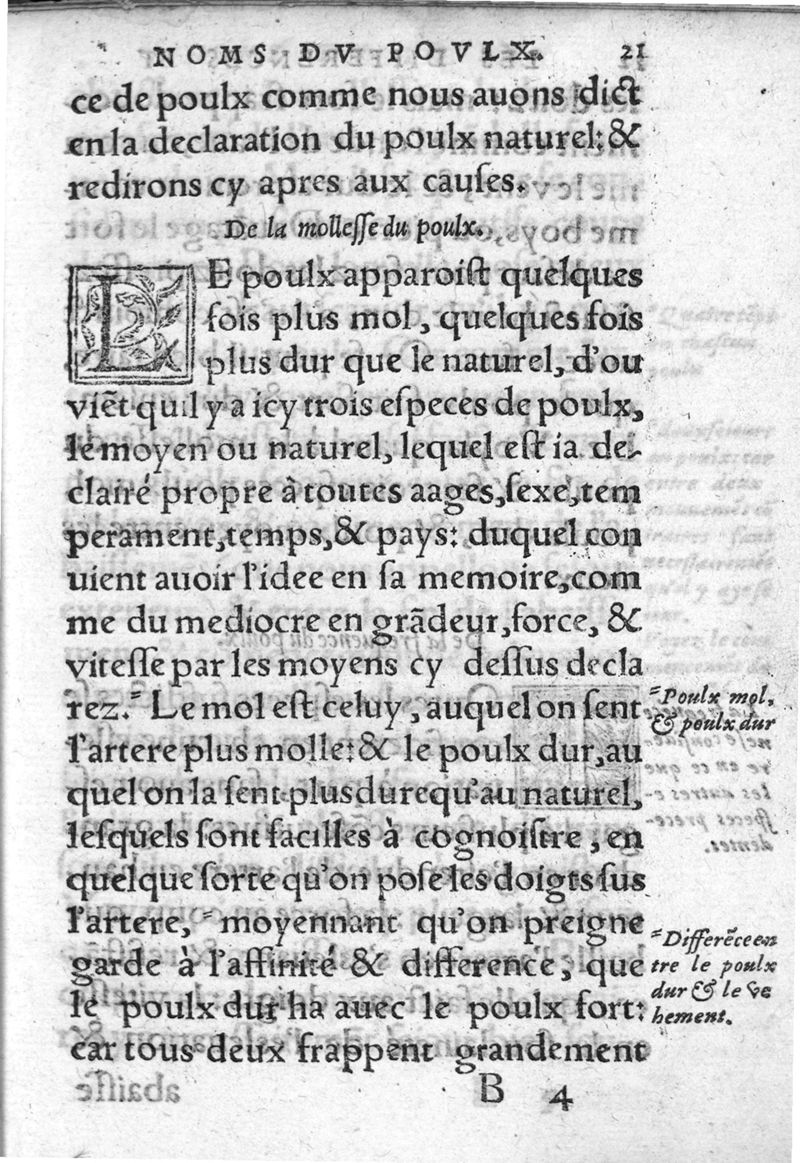 NOMS DV POVLX. 21
ce de poulx comme nous auons dict
en la declaration du poulx naturel: &
redirons cy apres aux cauſes.
De la molleſſe du poulx.
LE poulx apparoiſt quelques
fois plus mol, quelques fois
plus dur que le naturel, d'ou
viẽt quil y a icy trois eſpeces de poulx,
le moyen ou naturel, lequel eſt ia de-
clairé propre à toutes aages, ſexe, tem
perament, temps, & pays: duquel con
uient auoir l'idee en ſa memoire, com
me du mediocre en grãdeur, force, &
viteſſe par les moyens cy deſſus decla
rez. " Le mol eſt celuy, auquel on ſent
l'artere plus molle: & le poulx dur, au
quel on la ſent plus dure qu'au naturel,
leſquels ſont facilles à cognoiſtre, en
quelque ſorte qu'on poſe les doigts ſus
l'artere, " moyennant qu'on preigne
garde à l'affinité & difference, que
le poulx dur ha auec le poulx fort:
car tous deux frappent grandement
B 4
"Poulx mol,
& poulx dur
"Differẽce en
tre le poulx
dur & le ve
hement.